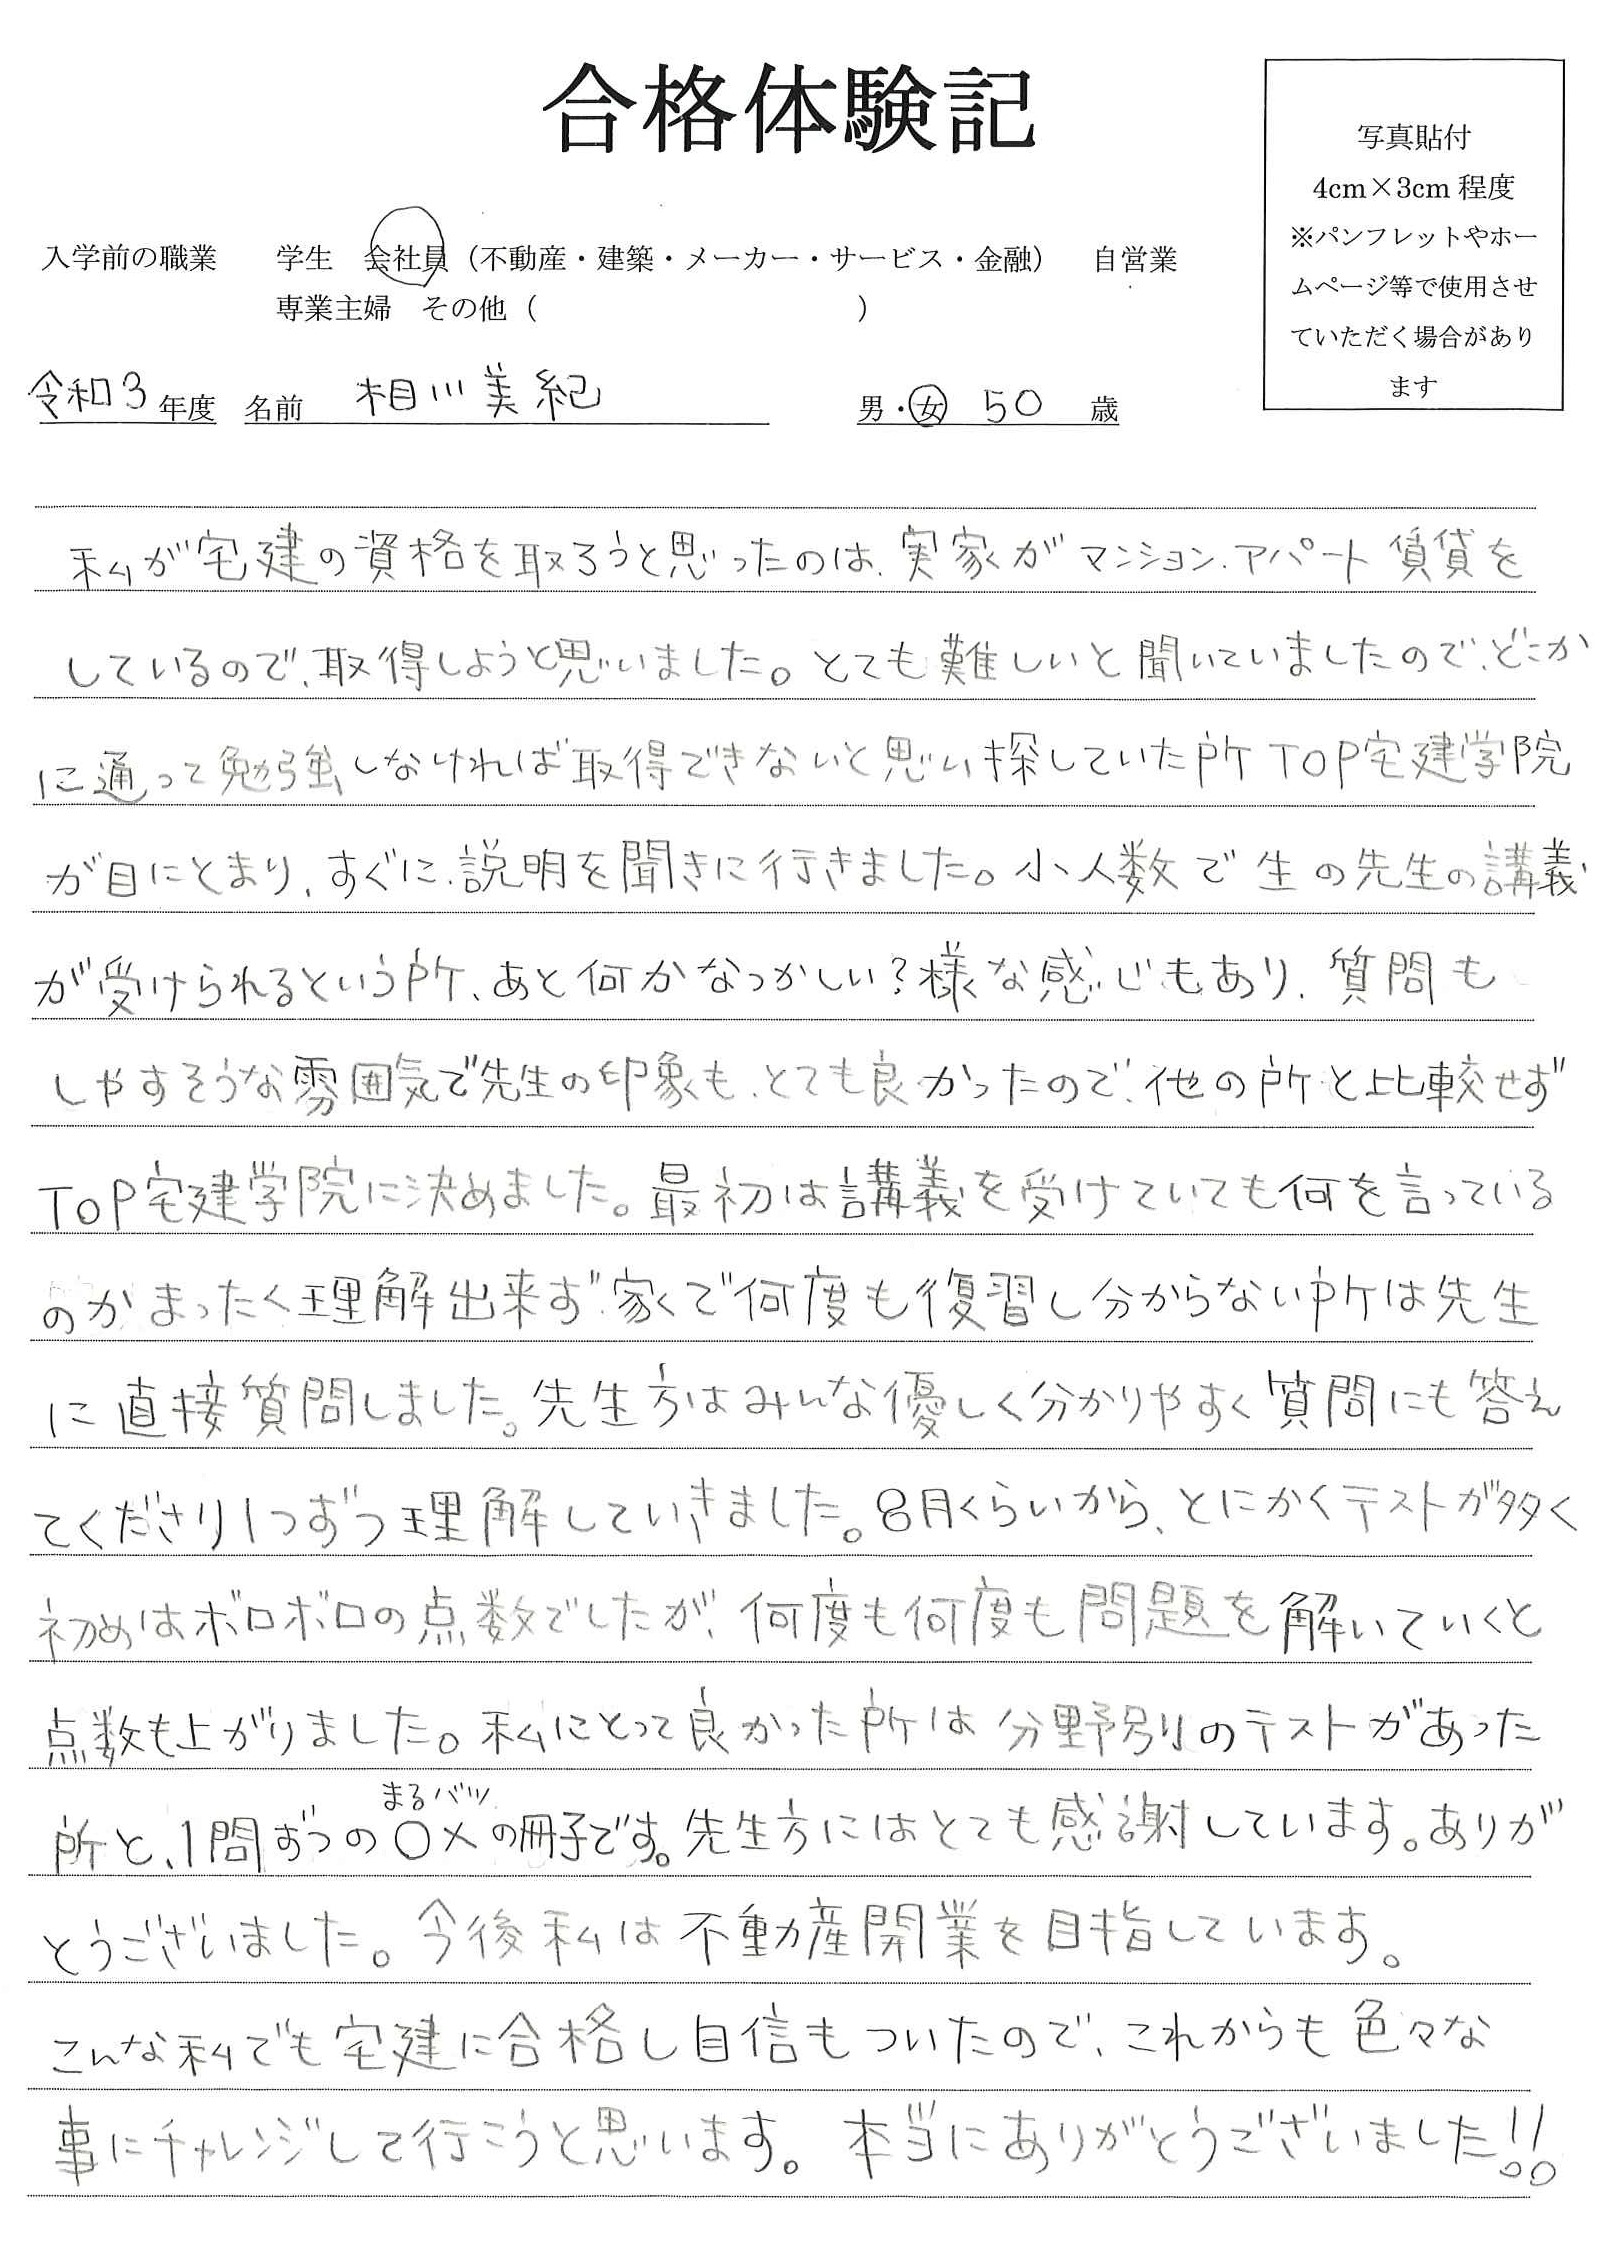 合格体験記
写真貼付
4cm×3cm 程度
※パンフレットやホー
ムページ等で使用させ
ていただく場合があり
ます
入学前の職業　学生　会社員（不動産・建築・メーカー・サービス・金融）　自営業
専業主婦　その他（　　　　　　　　　　　）
令和3年度　名前　相川美紀　男・女　50　歳
私が宅建の資格を取ろうと思ったのは、実家がマンション、アパート賃貸を
しているので、取得しようと思いました。とても難しいと聞いていましたので、どこか
に通って勉強しなければ取得できないと思い探していた所TOP宅建学院
が目にとまり、すぐに説明を聞きに行きました。小人数で生の先生の講義
が受けられるという所、あと何かなつかしい？様な感じもあり、質問も
しやすそうな雰囲気で先生の印象も、とても良かったので、他の所と比較せず
TOP宅建学院に決めました。最初は講義を受けていても何を言っている
のかまったく理解出来ず、家くで何度も復習し分からない所は先生
に直接質問しました。先生方はみんな優しく分かりやすく質問にも答え
てくださり1つずつ理解していきました。8月くらいから、とにかくテストが多く
初めはボロボロの点数でしたが、何度も何度も問題を解いていくと
点数も上がりました。私にとって良かった所は分野別のテストがあった
まるバツ
所と、1問ずつの○×の冊子です。先生方にはとても感謝しています。ありが
とうございました。今後私は不動産開業を目指しています。
こんな私でも宅建に合格し自信もついたので、これからも色々な
事にチャレンジして行こうと思います。本当にありがとうございました!!